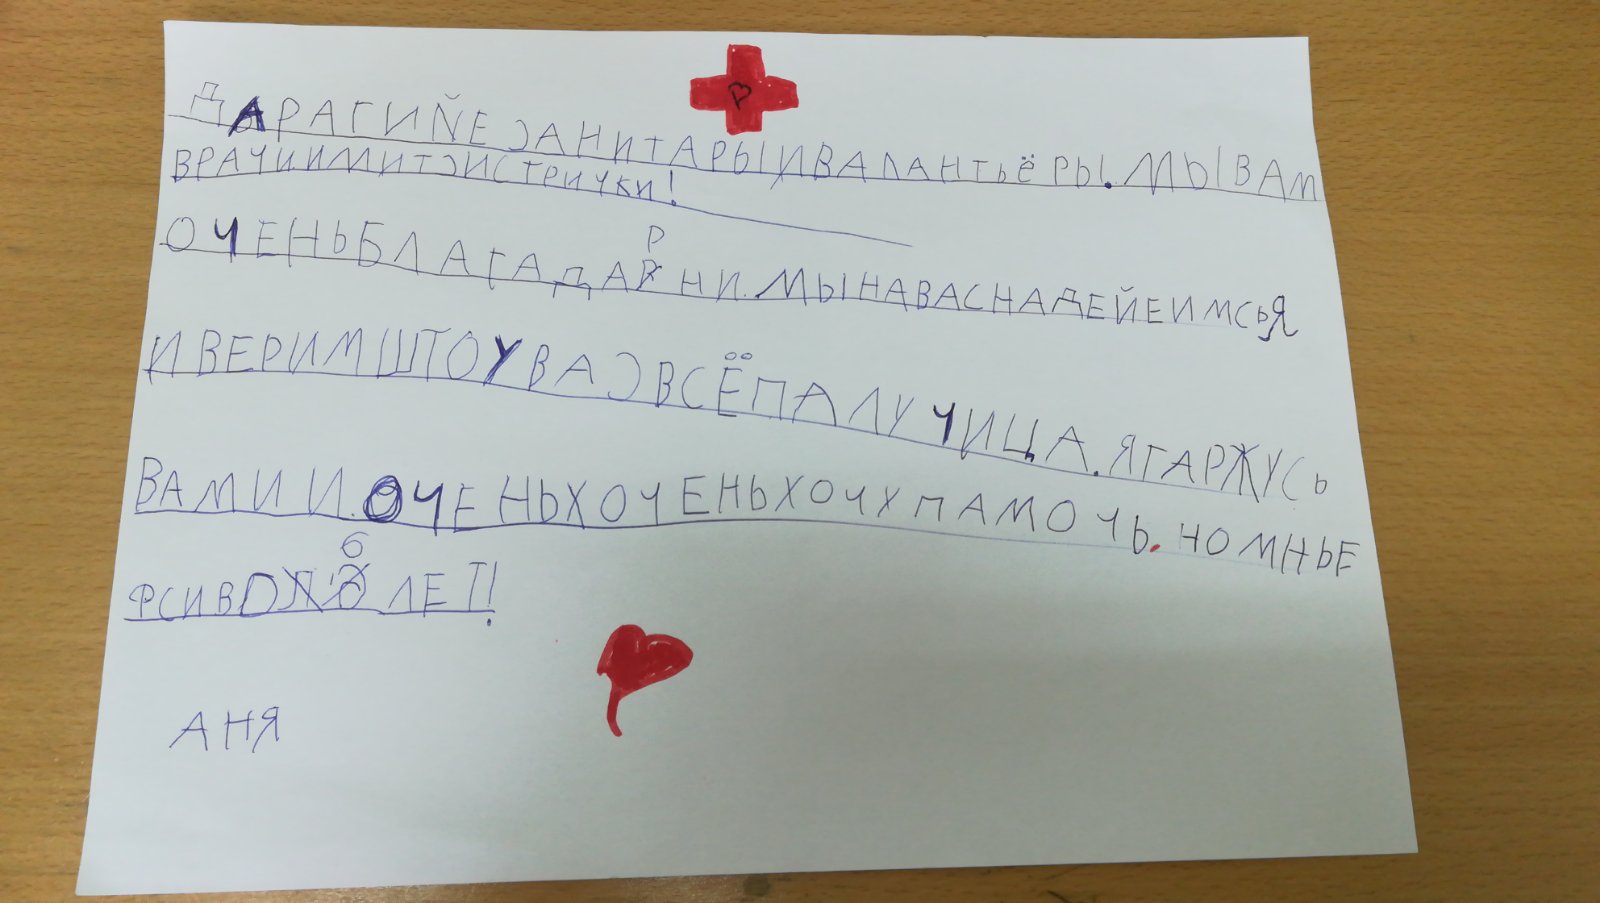 ДАРАГИЙЕ САНИТАРЫ И ВАЛАНТЬЁРЫ. МЫ ВАМ
ВРАЧИ И МИТСИСТРИЧКИ!
ОЧЕНЬ БЛАГАДАРНИ. МЫ НА ВАС НАДЕЙЕИМСЬЯ
И ВЕРИМ ШТО У ВАС ВСЁ ПАЛУЧИЦА. Я ГАРЖУСЬ
ВАМИ И. ОЧЕНЬ ХОЧЕНЬ ХОЧУ ПАМОЧЬ. НО МНЬЕ
ФСИВО 6 ЛЕТ!
АНЯ